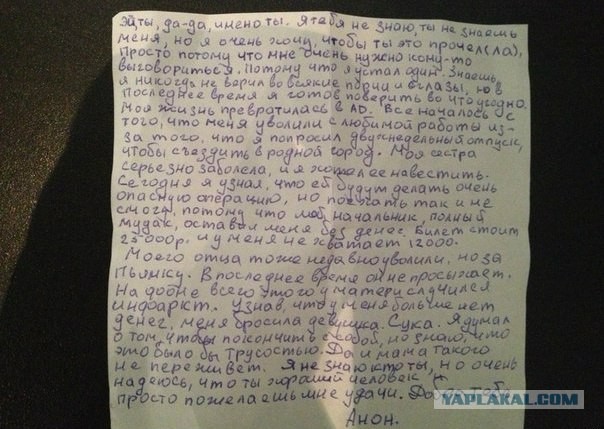 Эй, ты, да-да, имено ты. Я тебя не знаю, ты не знаешь
меня, но я очень хочу, чтобы ты это прочел(ла),
Просто потому что мне очень нужно кому-то
выговориться. Потому что я устал один. Знаешь,
я никогда не верил во всякие порчи и сглазы, но в
Последнее время я готов поверить во что угодно.
Моя жизнь превратилась в АD. Все началось с
того, что меня уволили с любимой работы из-
за того, что я попросил двухнедельный отпуск,
чтобы съездить в родной город. Моя сестра
серьезно заболела, и я хотел ее навестить.
Сегодня я узнал, что ей будут делать очень
опасную операцию, но поехать так и не
смогу, потому что мой начальник, полный
мудак, оставил меня без денег. Билет стоит
25000р. и у меня не хватает 12000.
Моего отца тоже недавно уволили, но за
Пьянку. В последнее время он не просыхает.
На фоне всего этого у матери случился
инфаркт. Узнав, что у меня больше нет
денег, меня бросила девушка. Сука. Я думал
о том, чтобы покончить с собой, но знаю, что
это было бы трусостью. Да и мама такого
не переживет. Я не знаю кто ты, но очень
надеюсь, что ты хороший человек и
просто пожелаешь мне удачи.
Анон.
YAPLAKAL.COM